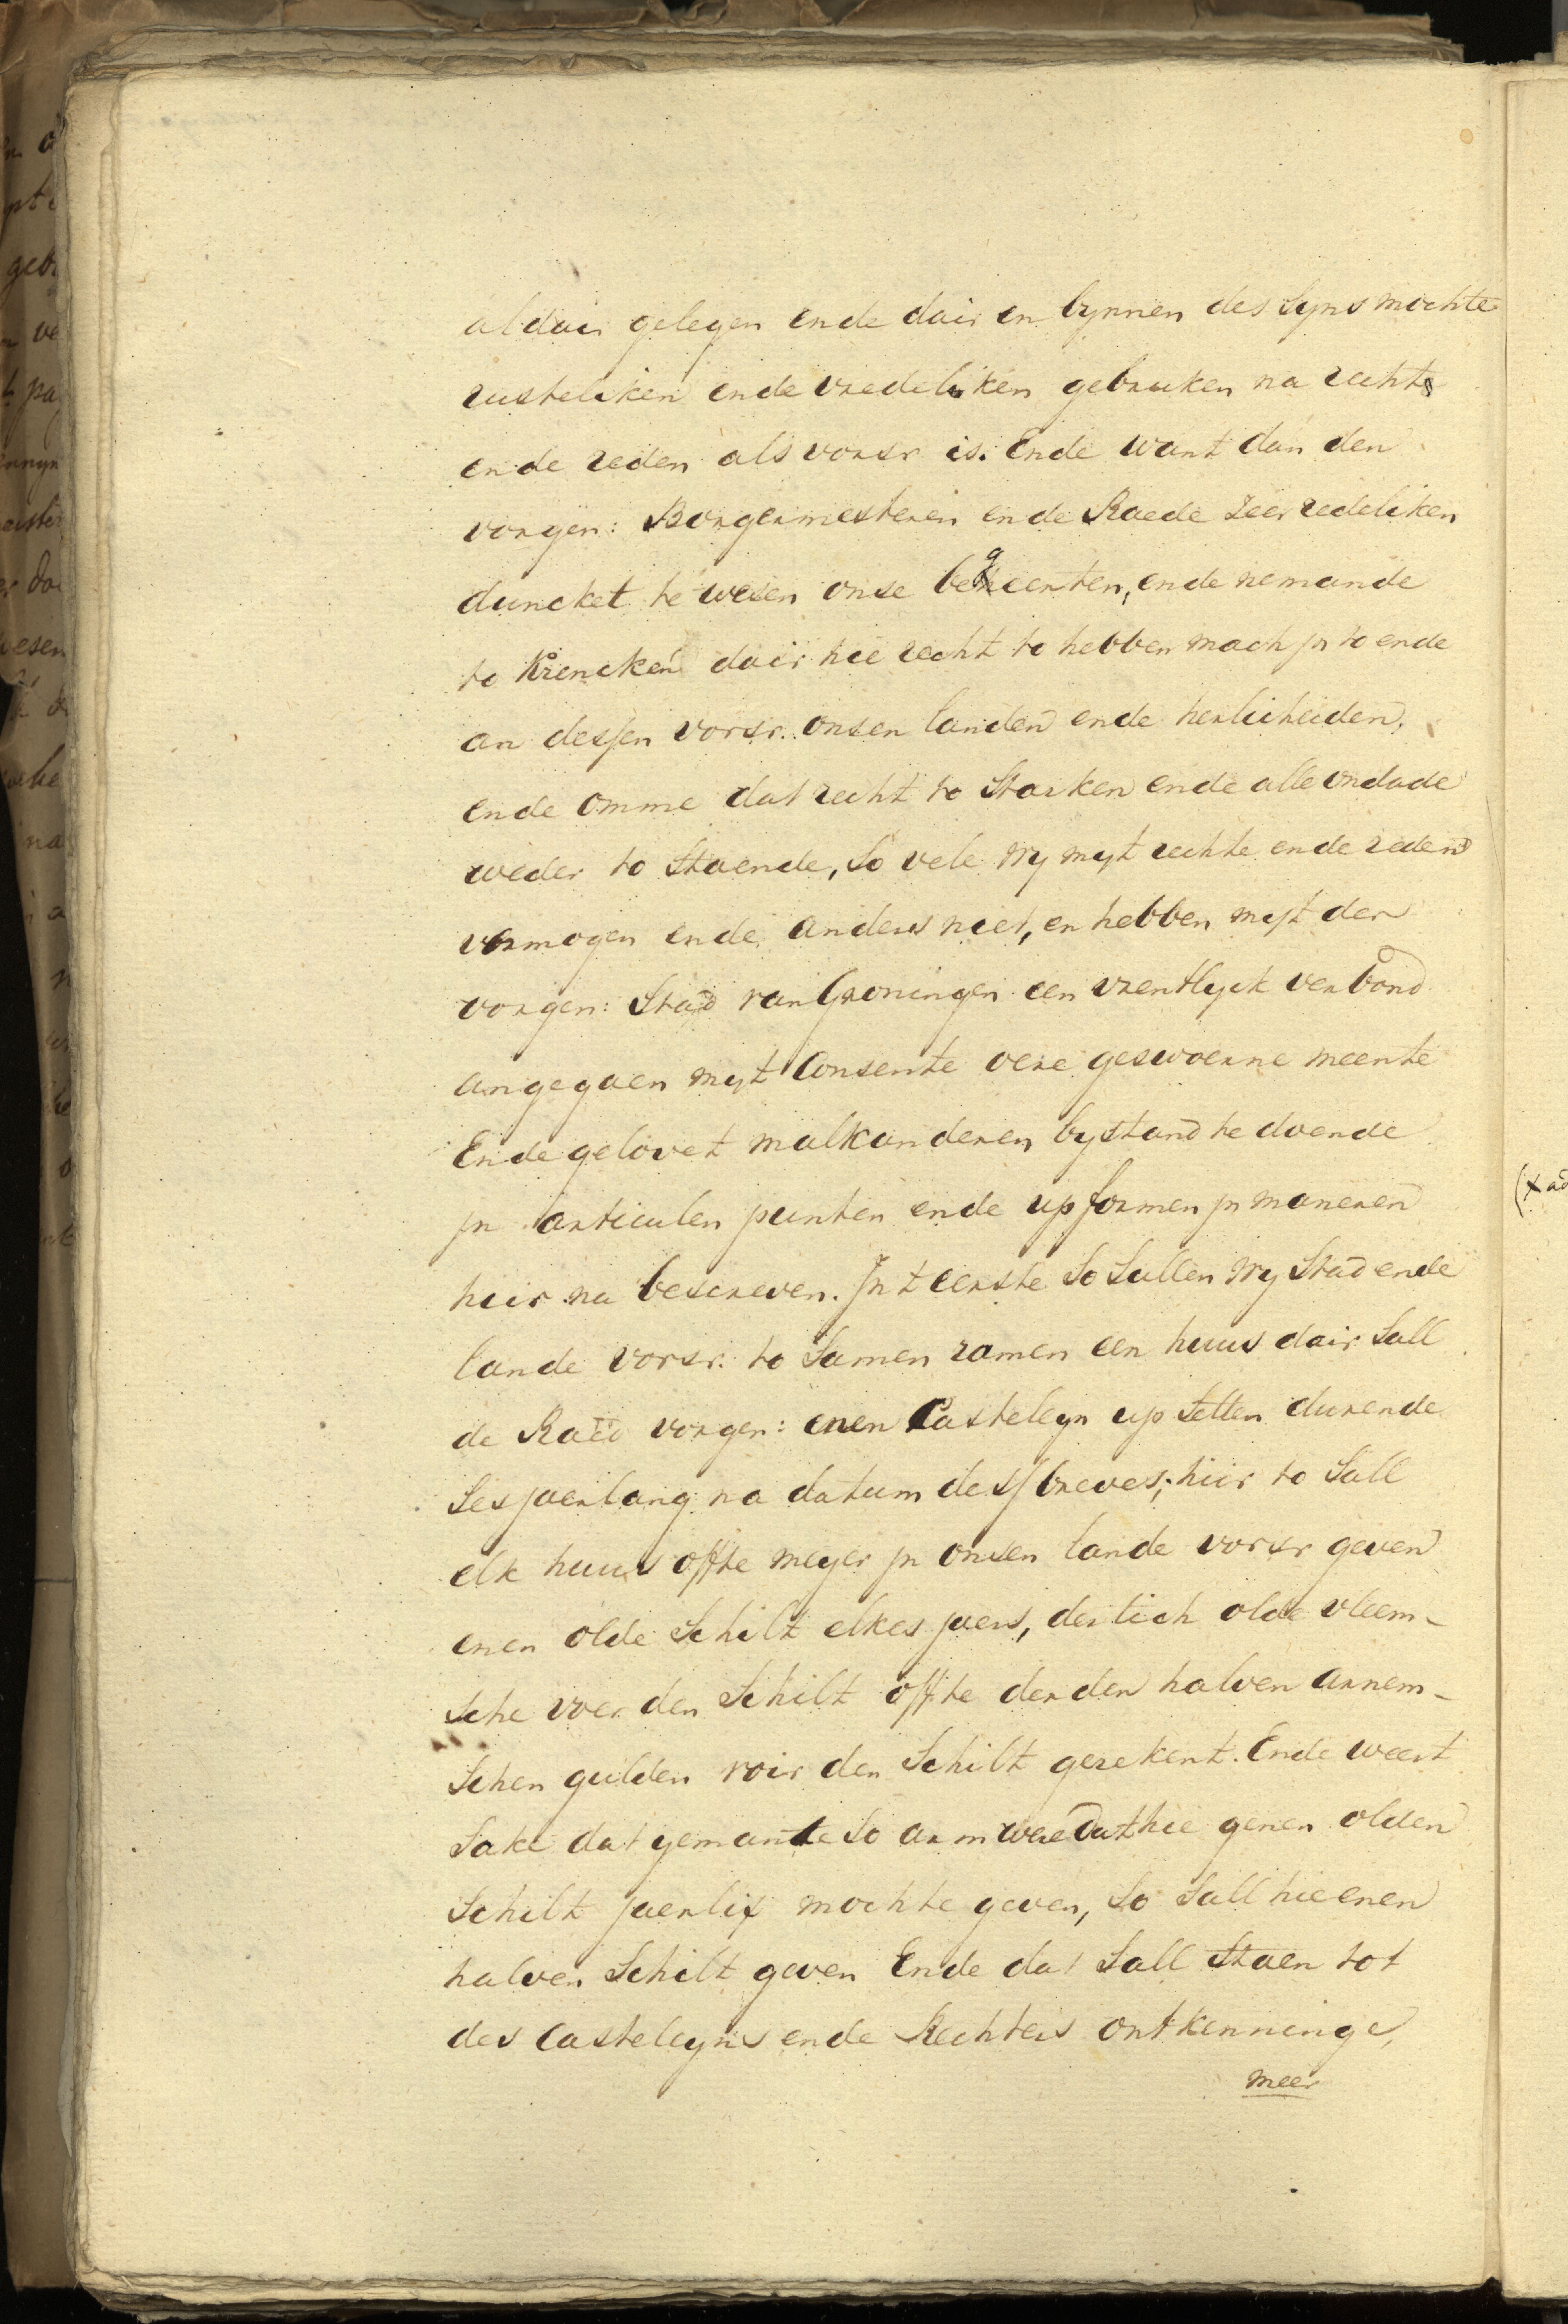 aldair gelegen ende dair en bynnen des syns mochte
rusteliken ende vredeliken gebruken na rechte
ende reden als vorsr is. Ende want dan den
vorgen: Borgermesteren ende Raede zeer redeliken
duncket te wesen onse begeerten, ende nemande
to krencken dair hie recht to hebben mach jn to ende
an dessen vorsr. onsen landen ende herlicheiden,
ende omme dat recht to Starken ende alle ondade
weder to Staende, So vele wy myt rechte ende reden
vermogen ende anders niet, en hebben myt der
vorgen: Stad van Groningen een vrentlyck verbond
angegaen myt Consente oere geswoerne meente
Ende gelovet malkanderen bystand te doende
jn articulen punten ende up formen jn maneren
hier na bescreven. Jn t eerste So Sullen wy Stad ende
lande vorsr. to Samen ramen een huus dair Sall
de Raed vorgen: enen Casteleyn up Setten durende
Ses jaerlang na datum dess breves; hier to Sall
elk huus offte meyer jn onsen lande vorsr geven
enen olde Schilt elkes jaers, dertich olde vleem-
sche voer den Schilt offte derden halven arnem-
schen gulden voir den Schilt gerekent. Ende weert
Sake dat yemante So arm were dat hie genen olden
Schilt jaerlix mochte geven, So Sall hie enen
halven Schilt geven Ende dat Sall Staen tot
des Casteleyns ende Rechters ontkenninge,
meer